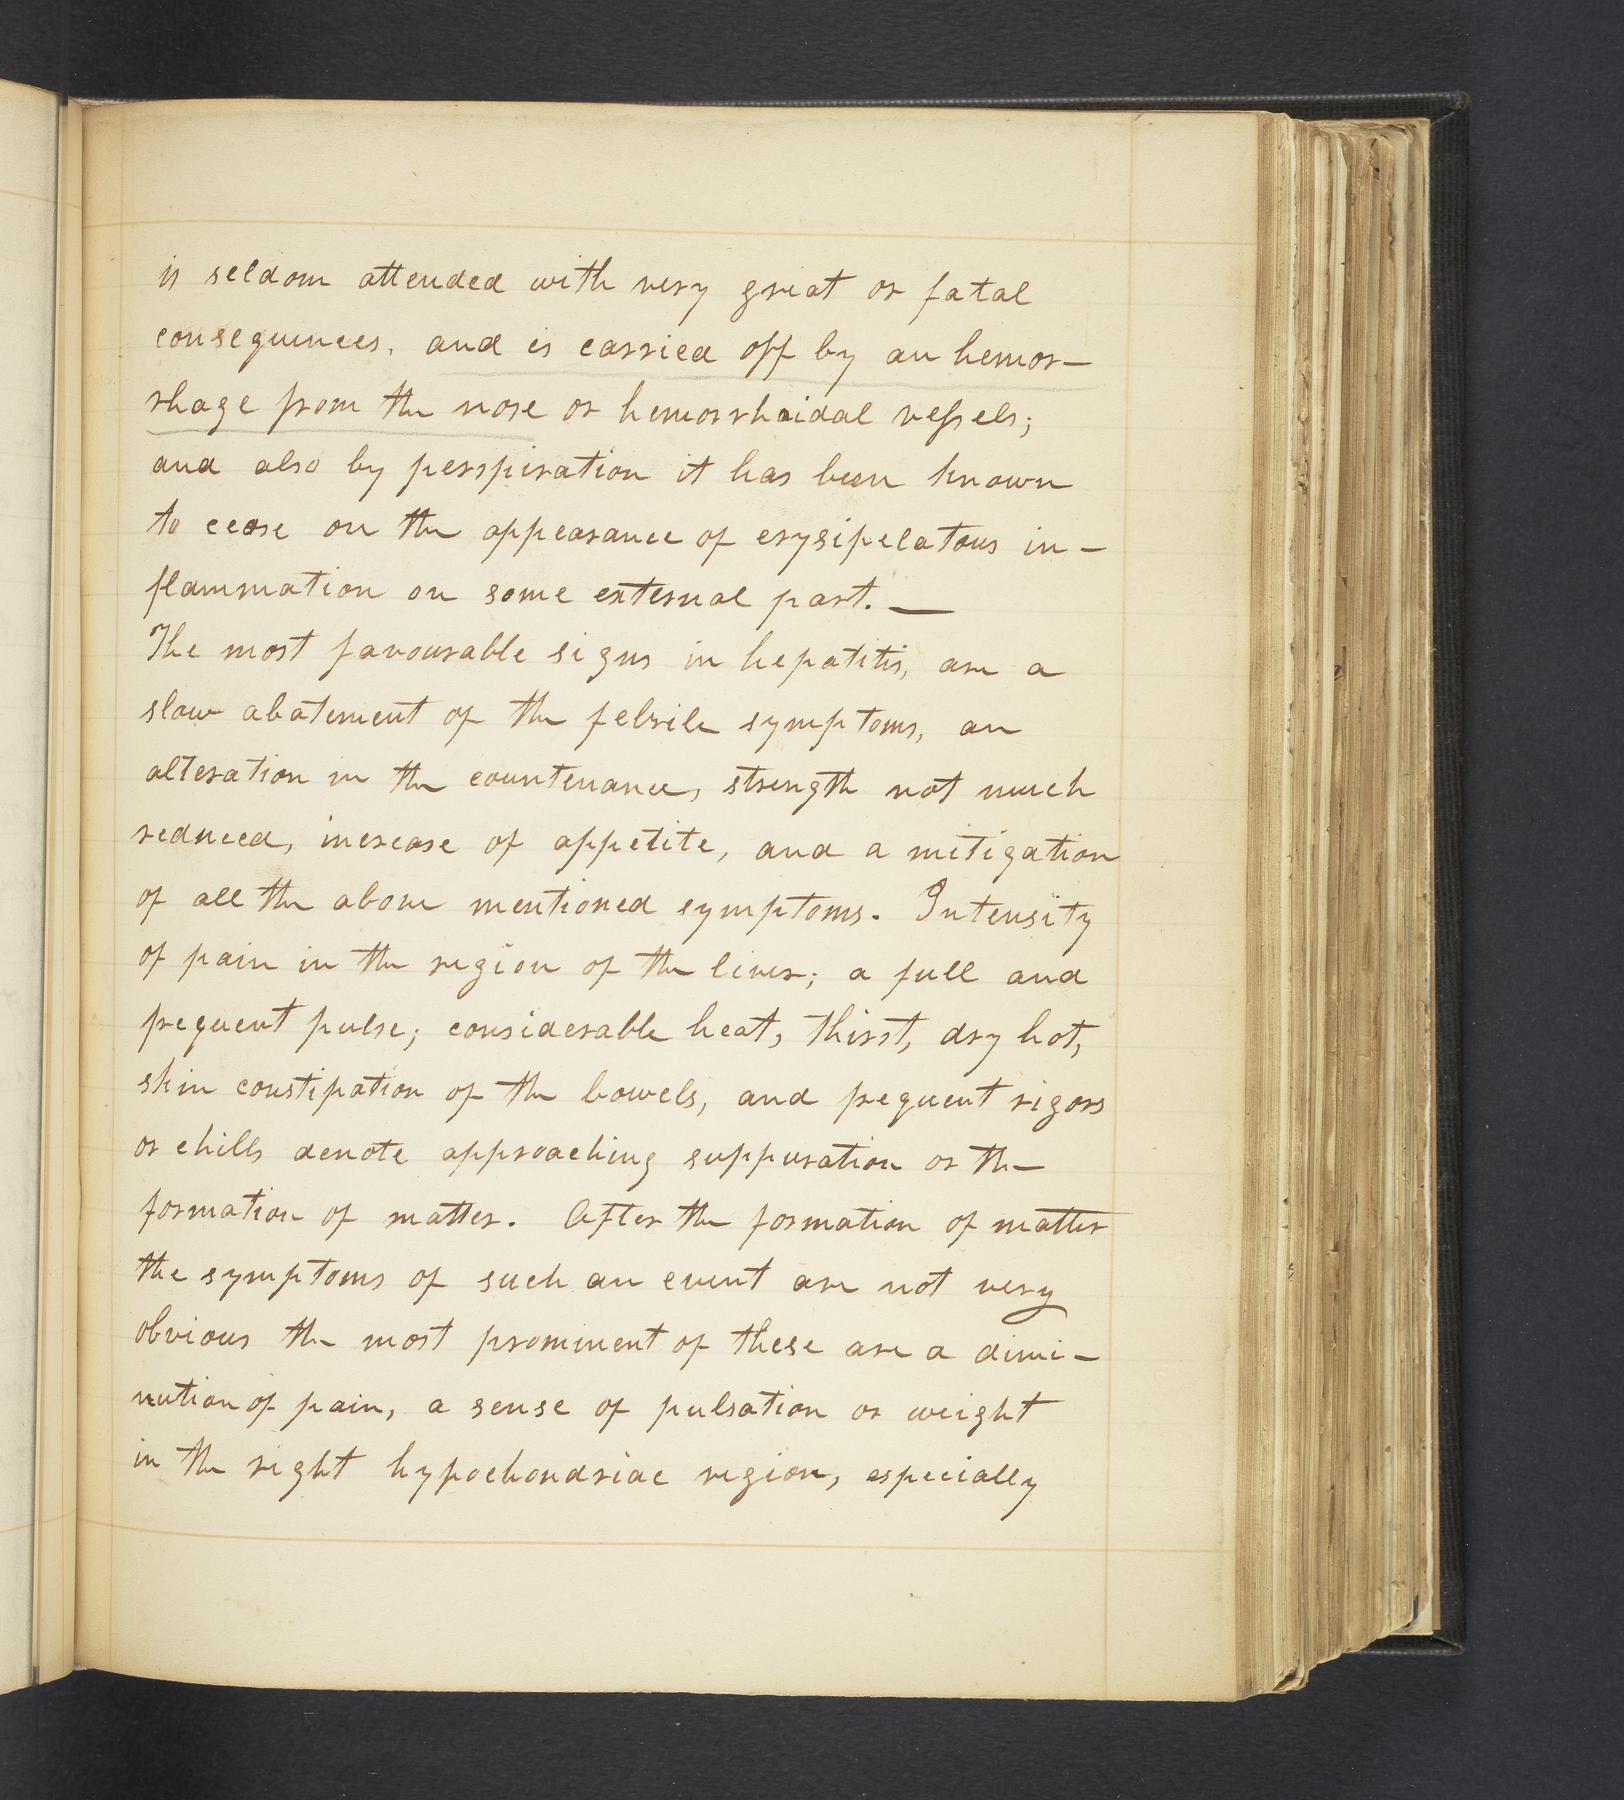 is seldom attended with very great or fatal
consequences, and is carried off by an hemor-
rhage from the nose or hemorrhoidal vessels;
and also by perspiration it has been known
to cease on the appearance of erysipelatous in-
flammation on some external part. —
The most favourable signs in hepatitis, are a
slow abatement of the febrile symptoms, an
alteration in the countenance, strength not much
reduced, increase of appetite, and a mitigation
of all the above mentioned symptoms. Intensity
of pain in the region of the liver; a full and
frequent pulse; considerable heat, thirst, dry hot,
skin constipation of the bowels, and frequent rigors
or chills denote approaching suppuration or the
formation of matter. After the formation of matter
the symptoms of such an event are not very
obvious the most prominent of these are a dimi-
nution of pain, a sense of pulsation or weight
in the right hypochondriac region, especially